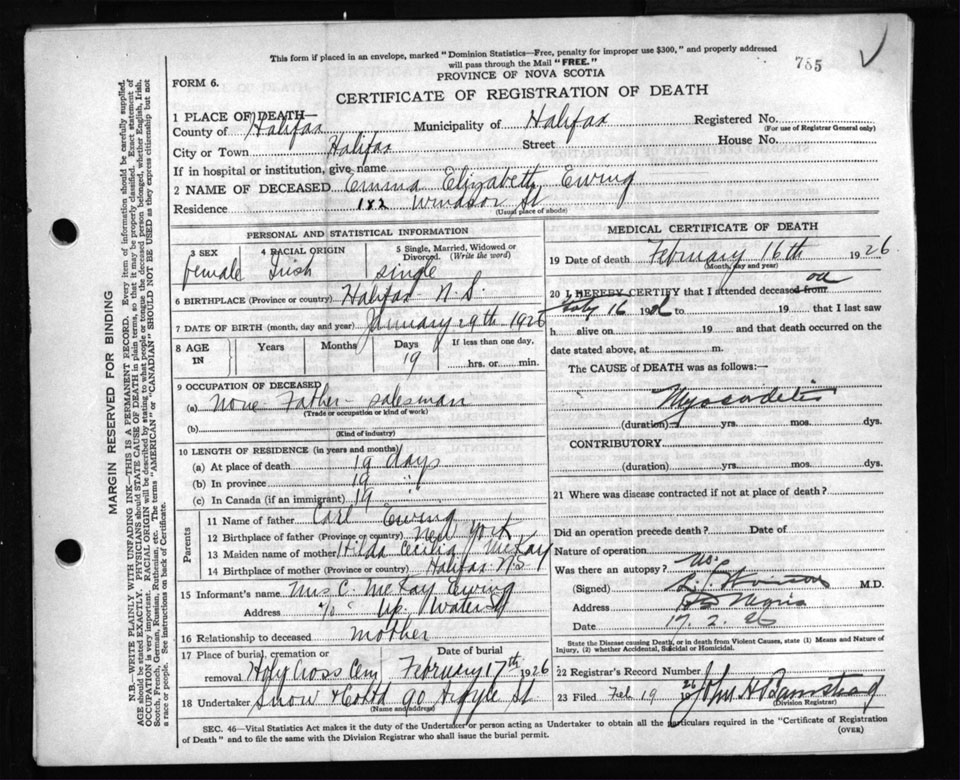 This form if placed in an envelope, marked "Dominion Statistics—Free, penalty for improper use $300," and properly addressed
will pass through the Mail "FREE."
785
PROVINCE OF NOVA SCOTIA
FORM 6.
CERTIFICATE OF REGISTRATION OF DEATH
1 PLACE OF DEATH—
County of Halifax Municipality of Halifax Registered No.
(For use of Registrar General only)
City or Town Halifax Street House No.
If in hospital or institution, give name
2 NAME OF DECEASED Emma Elizabeth Ewing
Residence 182 Windsor St
(Usual place of abode)
PERSONAL AND STATISTICAL INFORMATION
3 SEX 4 RACIAL ORIGIN 5 Single, Married, Widowed or
Divorced. (Write the word)
female Irish single
6 BIRTHPLACE (Province or country) Halifax N.S.
7 DATE OF BIRTH (month, day and year) January 29th 1926
8 AGE IN Years Months Days If less than one day,
19 hrs. or min.
9 OCCUPATION OF DECEASED
(a) None Father - salesman
(Trade or occupation or kind of work)
(b)
(Kind of industry)
10 LENGTH OF RESIDENCE (in years and months)
(a) At place of death 19 days
(b) In province 19 "
(c) In Canada (if an immigrant) 19 "
Parents
11 Name of father Carl Ewing
12 Birthplace of father (Province or country) New York
13 Maiden name of mother Hilda Cecilia McKay
14 Birthplace of mother (Province or country) Halifax N.S
15 Informant's name Mrs C. McKay Ewing
Address Up. Water St
16 Relationship to deceased mother
17 Place of burial, cremation or Date of burial
removal Holy Cross Cem February 17th 1926
18 Undertaker Snow & 90 Argyle St
(Name and address)
MEDICAL CERTIFICATE OF DEATH
19 Date of death February 16th 1926
(Month, day and year)
20 I HEREBY CERTIFY that I attended deceased from
Feby 16 19 to 19 that I last saw
h alive on 19 and that death occurred on the
date stated above, at m.
The CAUSE of DEATH was as follows:—
(duration) yrs. mos. dys.
CONTRIBUTORY
(duration) yrs. mos. dys.
21 Where was disease contracted if not at place of death?
Did an operation precede death? Date of
Nature of operation
Was there an autopsy? No
(Signed) M.D.
Address
Date 17.2.26
State the Disease causing Death, or in death from Violent Causes, state (1) Means and Nature of
Injury, (2) whether Accidental, Suicidal or Homicidal.
22 Registrar's Record Number
23 Filed Feb 19 1926 John H
(Division Registrar)
SEC. 46—Vital Statistics Act makes it the duty of the Undertaker or person acting as Undertaker to obtain all the particulars required in the "Certificate of Registration
of Death" and to file the same with the Division Registrar who shall issue the burial permit. (OVER)
MARGIN RESERVED FOR BINDING
N.B.—WRITE PLAINLY WITH UNFADING INK—THIS IS A PERMANENT RECORD. Every item of information should be carefully supplied.
AGE should be stated EXACTLY. PHYSICIANS should STATE CAUSE OF DEATH in plain terms, so that it may be properly classified. Exact statement of
OCCUPATION is very important. RACIAL ORIGIN will be described by stating to what people or tongue the deceased person belonged, whether English, Irish,
Scotch, French, German, Russian, Ruthenian, etc. The terms "AMERICAN" or "CANADIAN" SHOULD NOT BE USED as they express citizenship but not
a race or people. See instructions on back of Certificate.